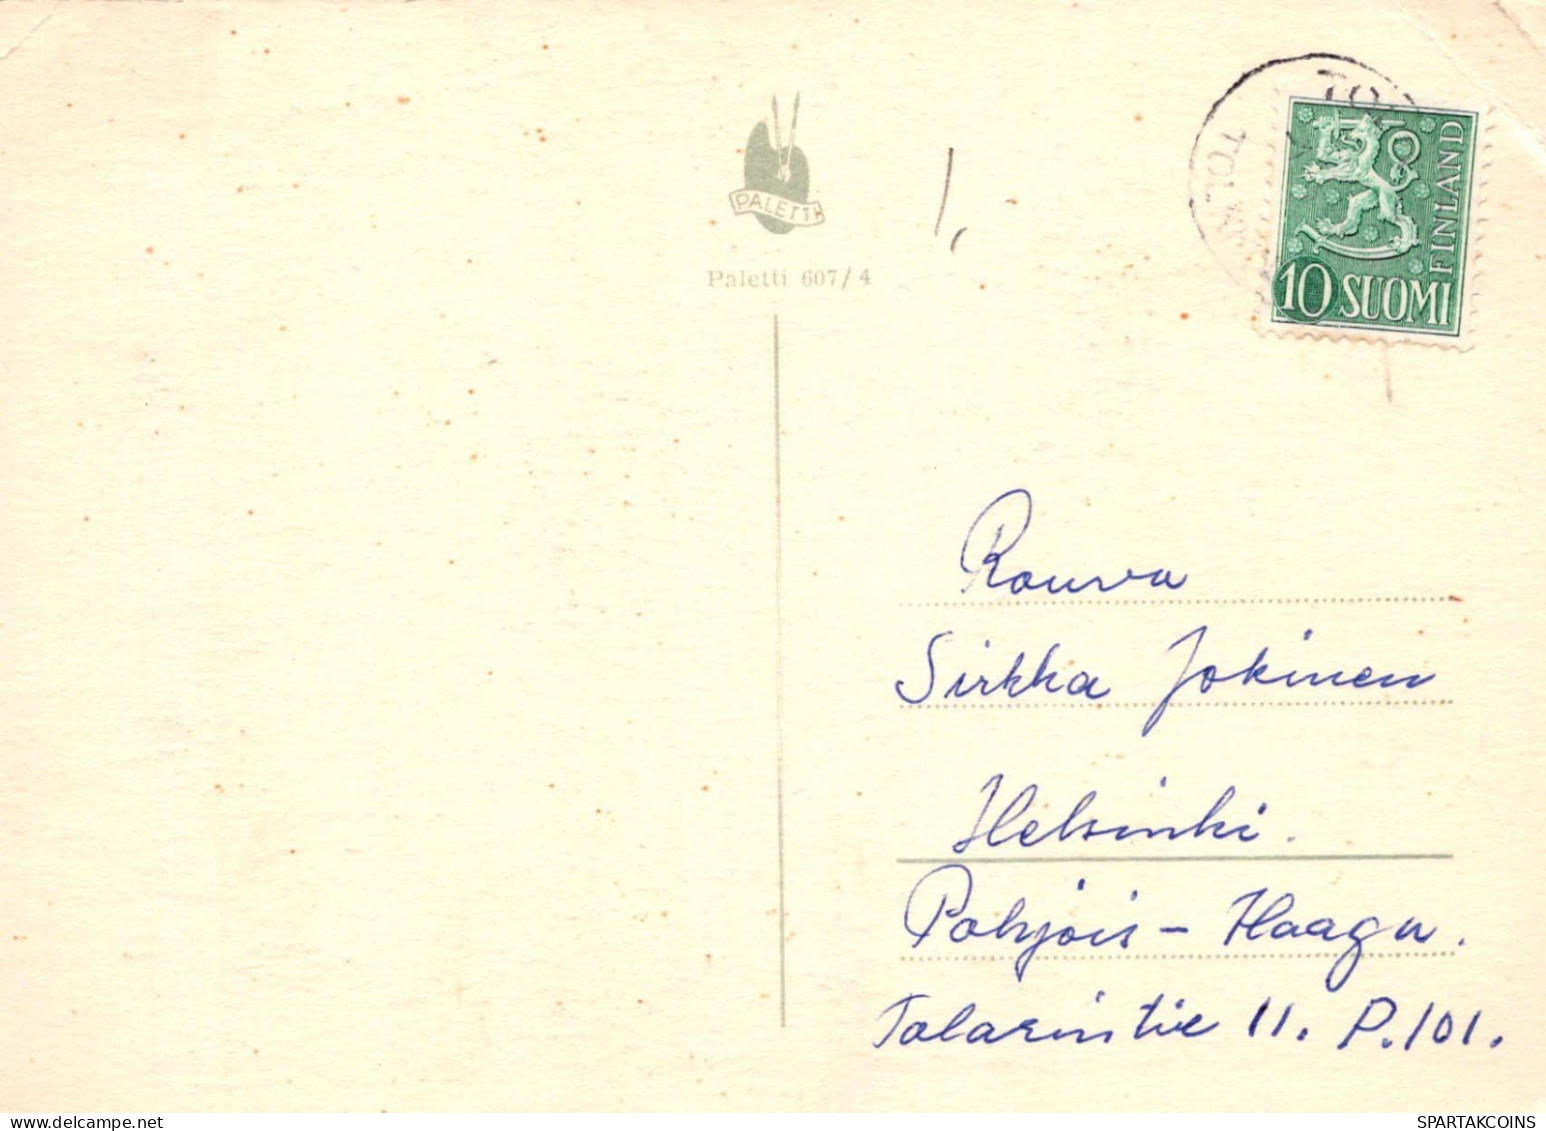 PALETTI
Paletti 607/4
1,
FINLAND
10 SUOMI
Rouva
Sirkka Jokinen
Helsinki.
Pohjois-Haaga.
Talarintie 11. P. 101.
delcampe.net
SPARTAKCOINS